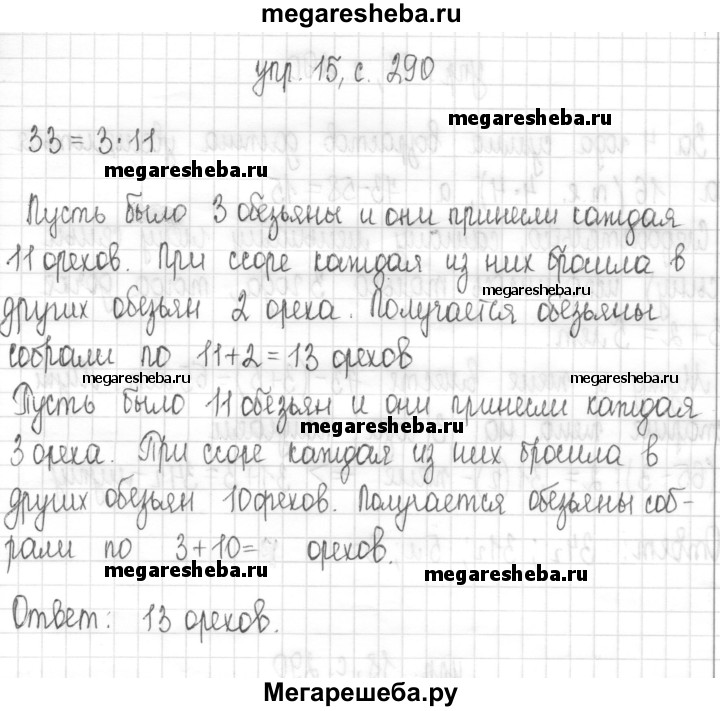 megaresheba.ru
упр. 15, с. 290
megaresheba.ru
33 = 3·11
megaresheba.ru
Пусть было 3 обезьяны и они принесли каждая
11 орехов. При ссоре каждая из них бросила в
megaresheba.ru
других обезьян 2 ореха. Получается обезьяны
собрали по 11+2=13 орехов
megaresheba.ru megaresheba.ru
Пусть было 11 обезьян и они принесли каждая
megaresheba.ru
3 ореха. При ссоре каждая из них бросила в
других обезьян 10 орехов. Получается обезьяны соб-
рали по 3+10= орехов.
megaresheba.ru megaresheba.ru
Ответ: 13 орехов.
Мегарешеба.ру